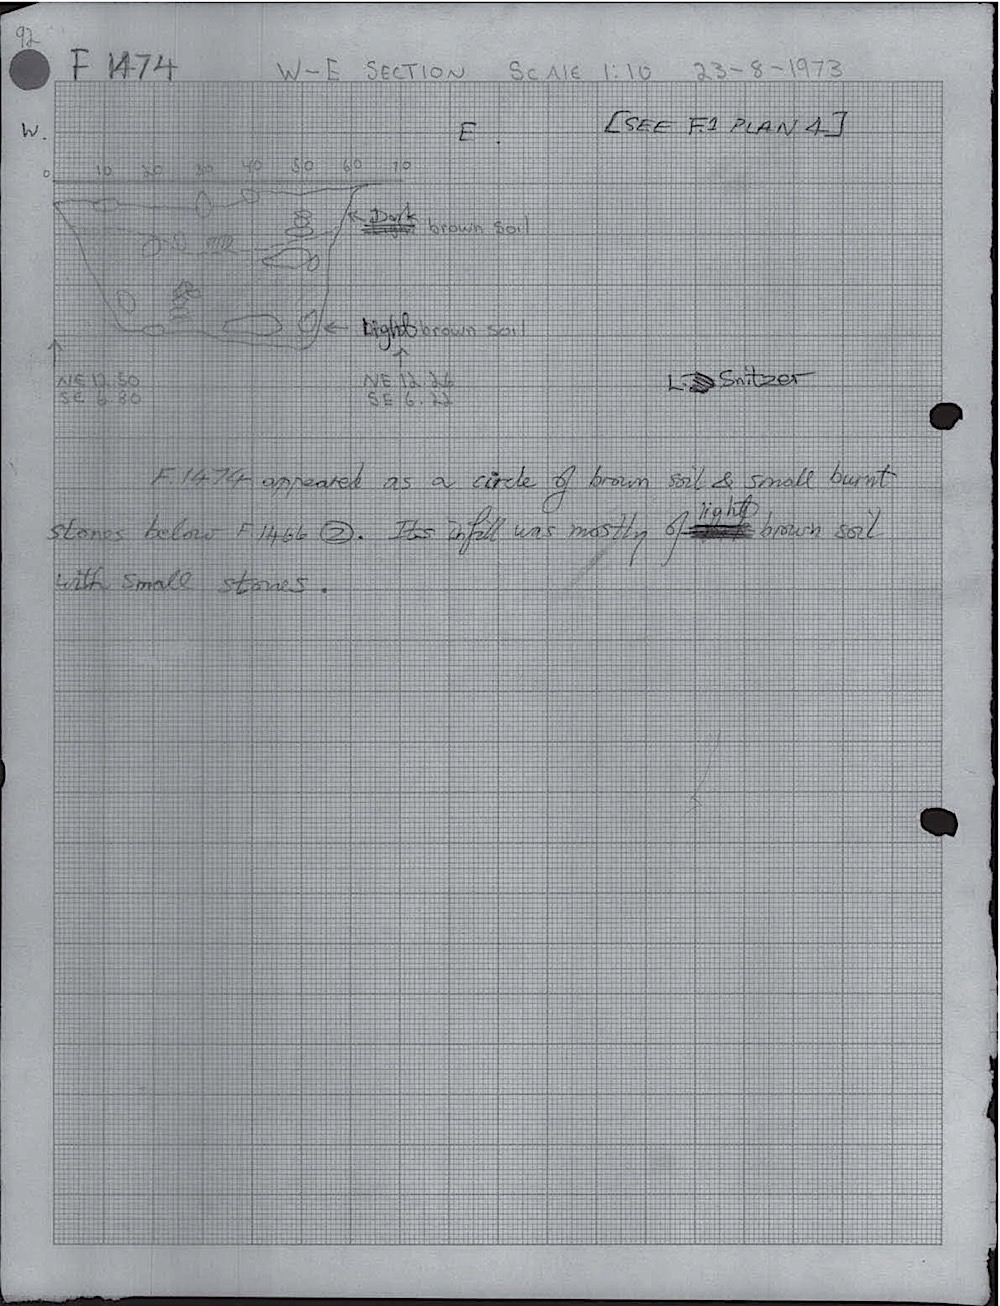 92
F 1474 W-E SECTION SCALE 1:10 23-8-1973
W. E. [SEE F.1 PLAN 4]
0 10 20 30 40 50 60 70
Dark brown soil
Light brown soil
NE 12.50 NE 12.26
SE 6.80 SE 6.22
L. Snitzer
F.1474 appeared as a circle of brown soil & small burnt
stones below F1466 ②. Its infill was mostly of light brown soil
with small stones.